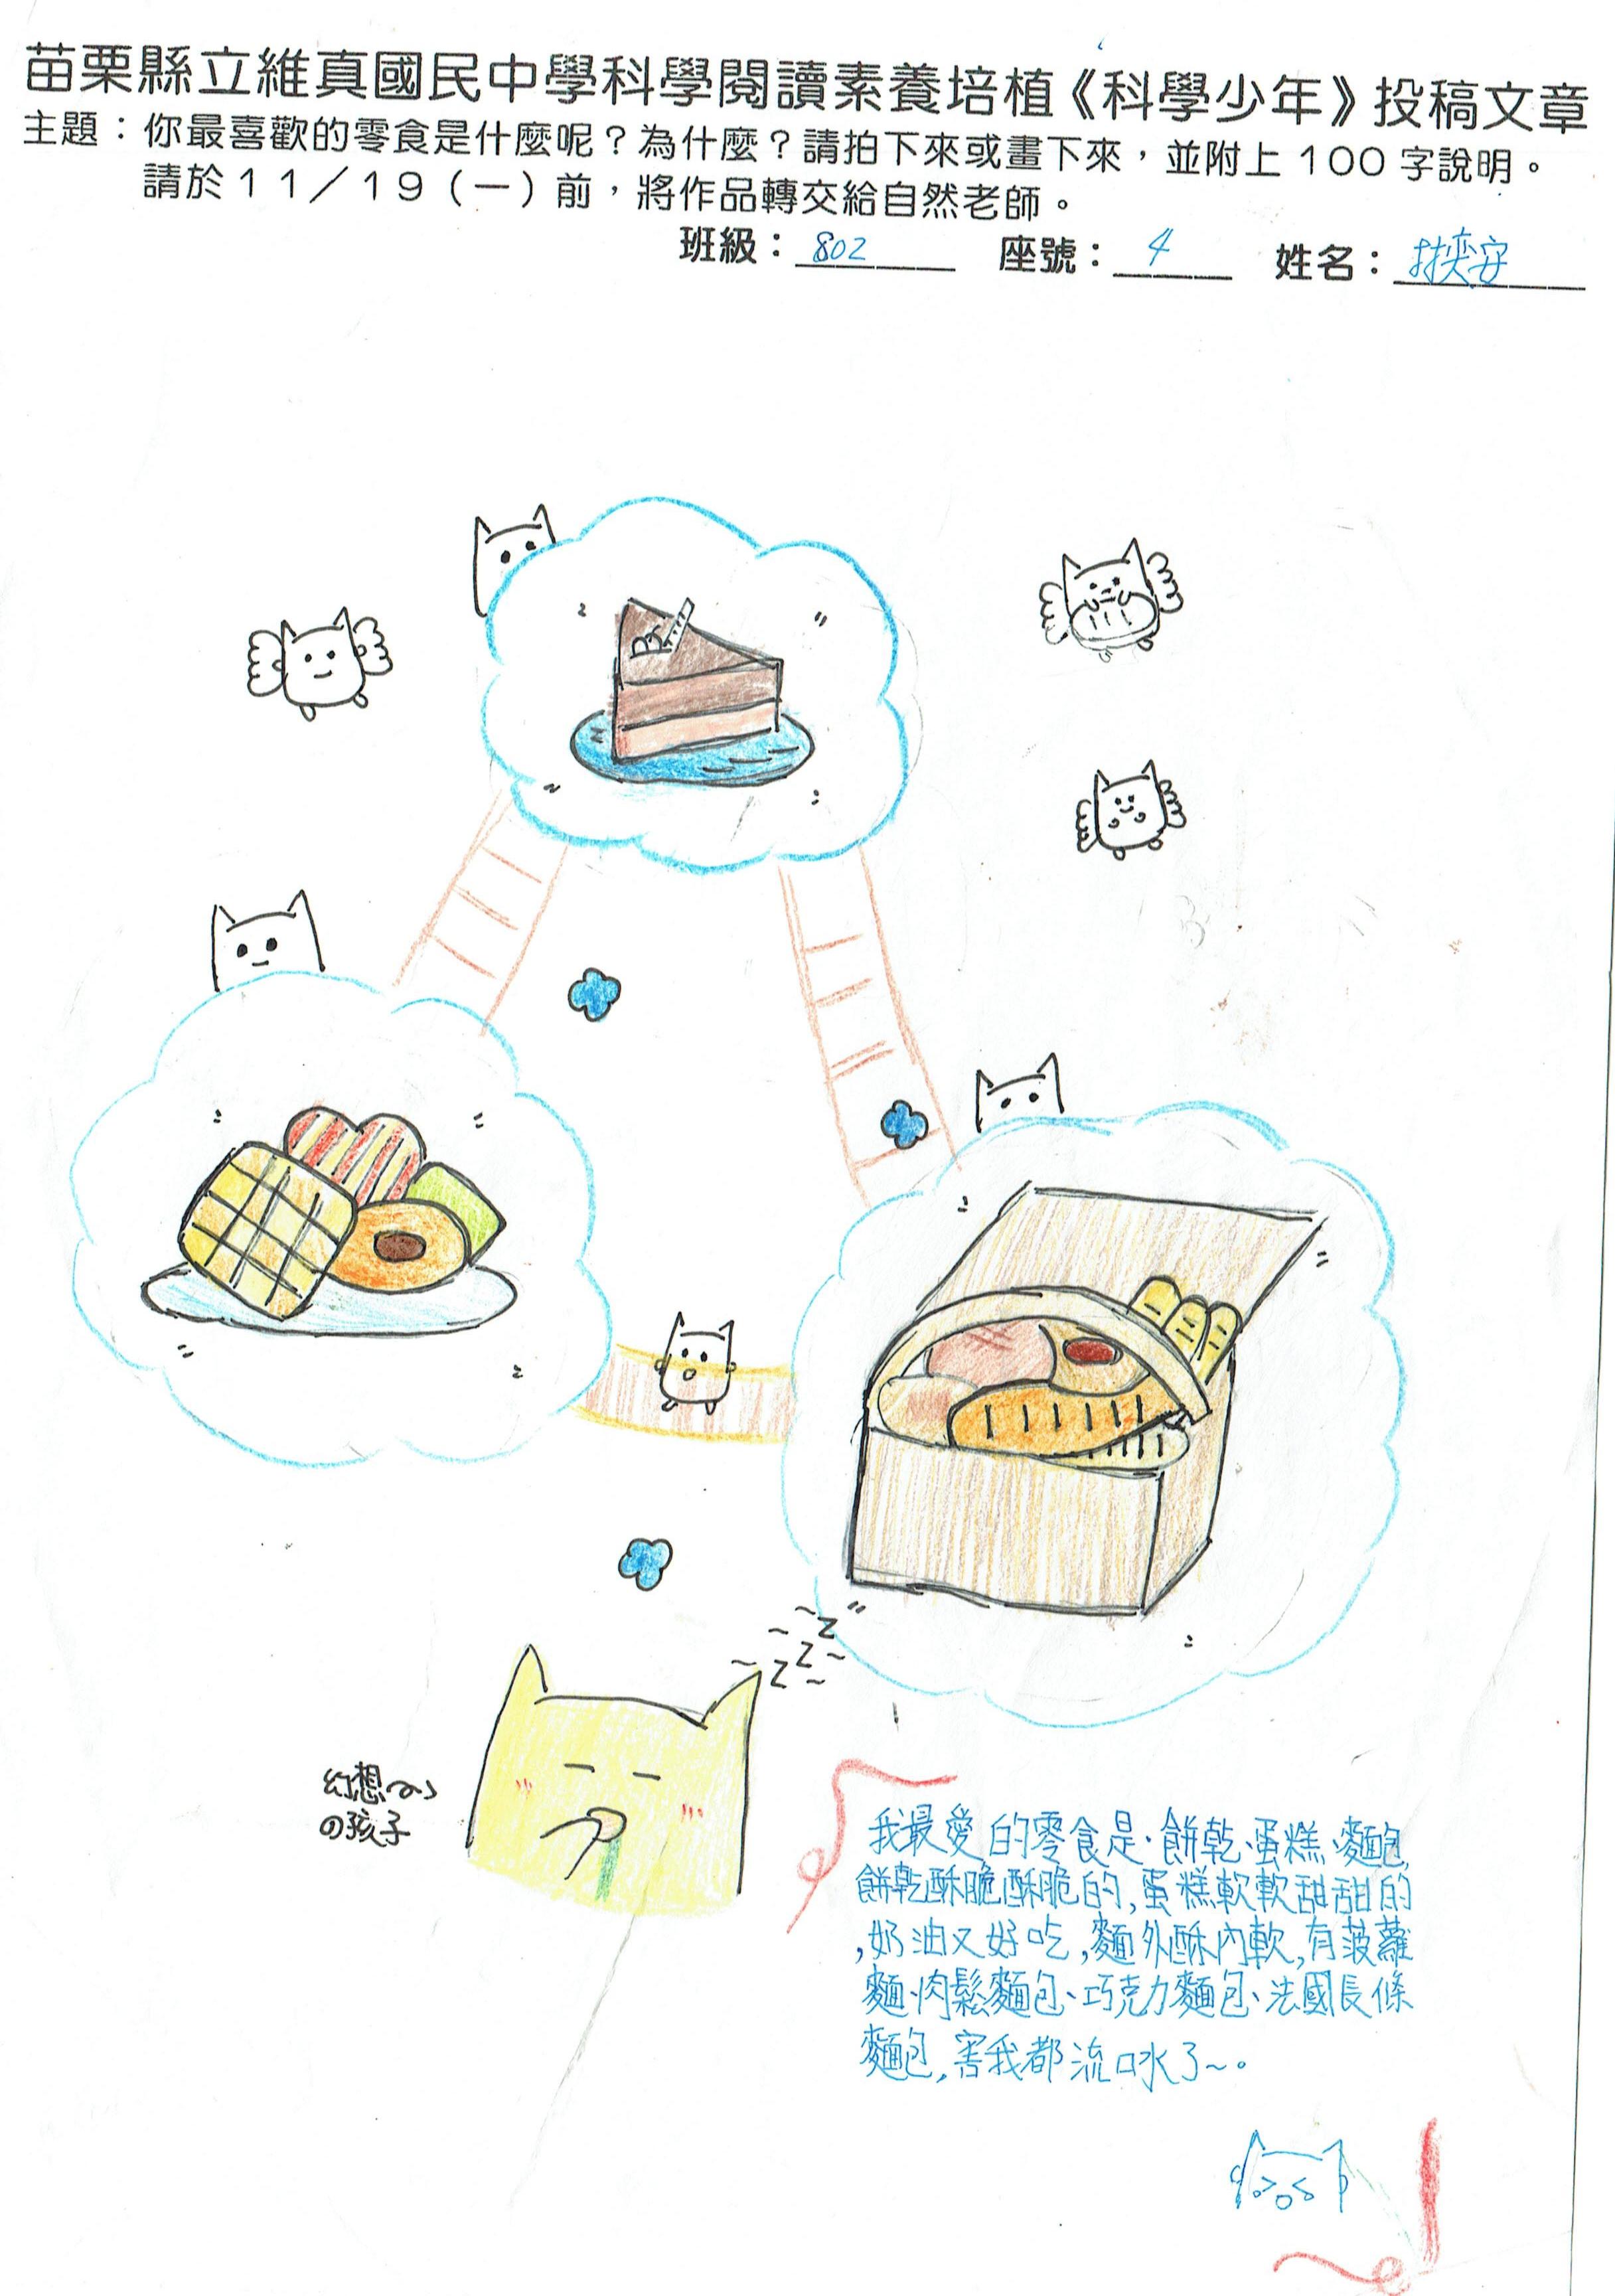 苗栗縣立維真國民中學科學閱讀素養培植《科學少年》投稿文章
主題：你最喜歡的零食是什麼呢？為什麼？請拍下來或畫下來，並附上100字說明。
請於11／19（一）前，將作品轉交給自然老師。
班級：802 座號：4 姓名：林奕安
z
z
z
幻想
の孩子
我最愛的零食是、餅乾、蛋糕、麵包,
餅乾酥脆酥脆的,蛋糕軟軟甜甜的
,奶油又好吃,麵外酥內軟,有菠蘿
麵、肉鬆麵包、巧克力麵包、法國長條
麵包,害我都流口水了~。